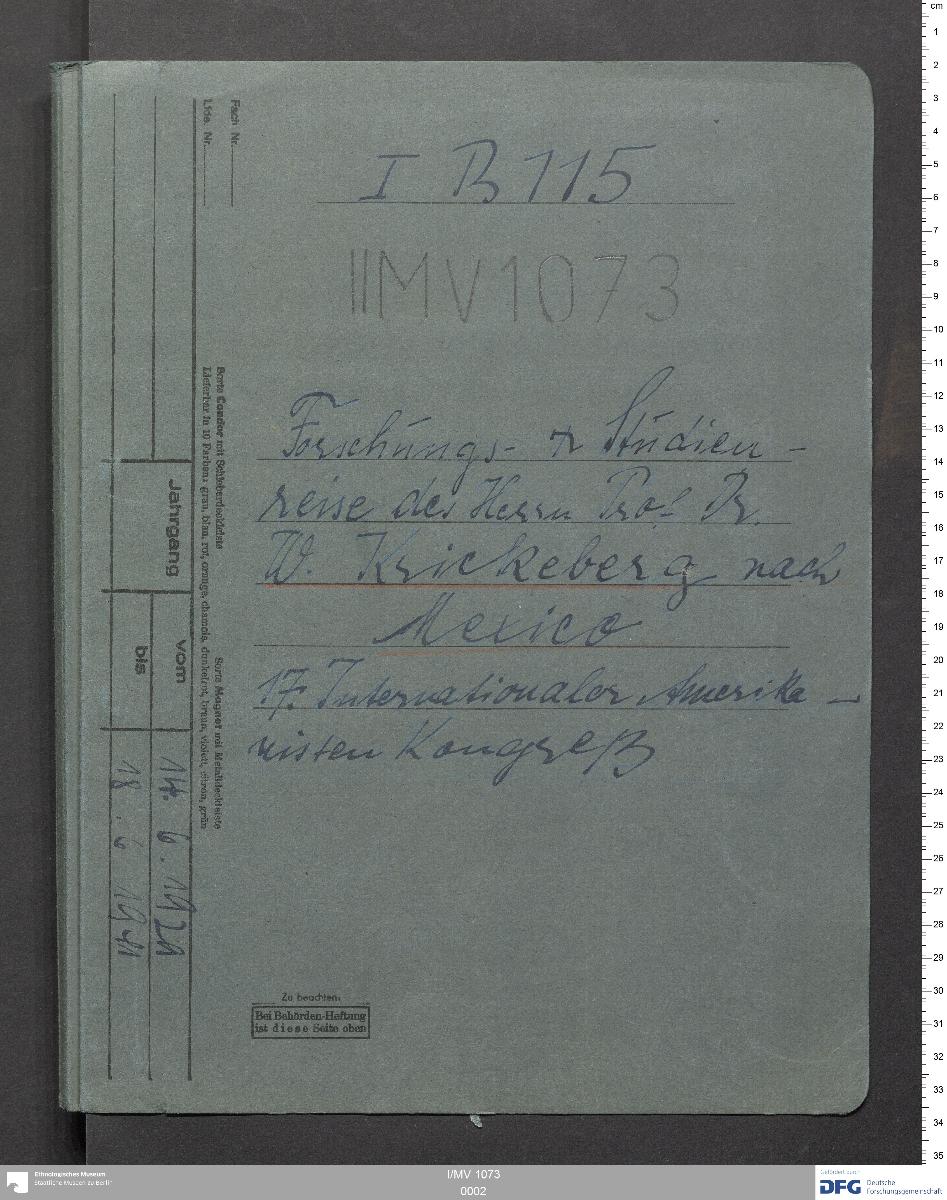 I B 115
I/MV 1073
Forschungs- u Studien-
reise des Herrn Prof. Dr.
W. Krickeberg nach
Mexico
17. Internationaler Amerika-
nisten Kongreß
Fach Nr.
Lfde. Nr.
Sorte Condor mit Schieberdeckleiste Sorte Magnet mit Metalldeckleiste
Lieferbar in 10 Farben: grau, blau, rot, orange, chamois, dunkelrot, braun, violett, citron, grün
Jahrgang
vom 14. 6. 1929
bis 18. 6. 1941
Zu beachten:
Bei Behörden-Heftung
ist diese Seite oben
cm
1
2
3
4
5
6
7
8
9
10
11
12
13
14
15
16
17
18
19
20
21
22
23
24
25
26
27
28
29
30
31
32
33
34
35
Ethnologisches Museum
Staatliche Museen zu Berlin
I/MV 1073
0002
Gefördert durch
DFG Deutsche
Forschungsgemeinschaft